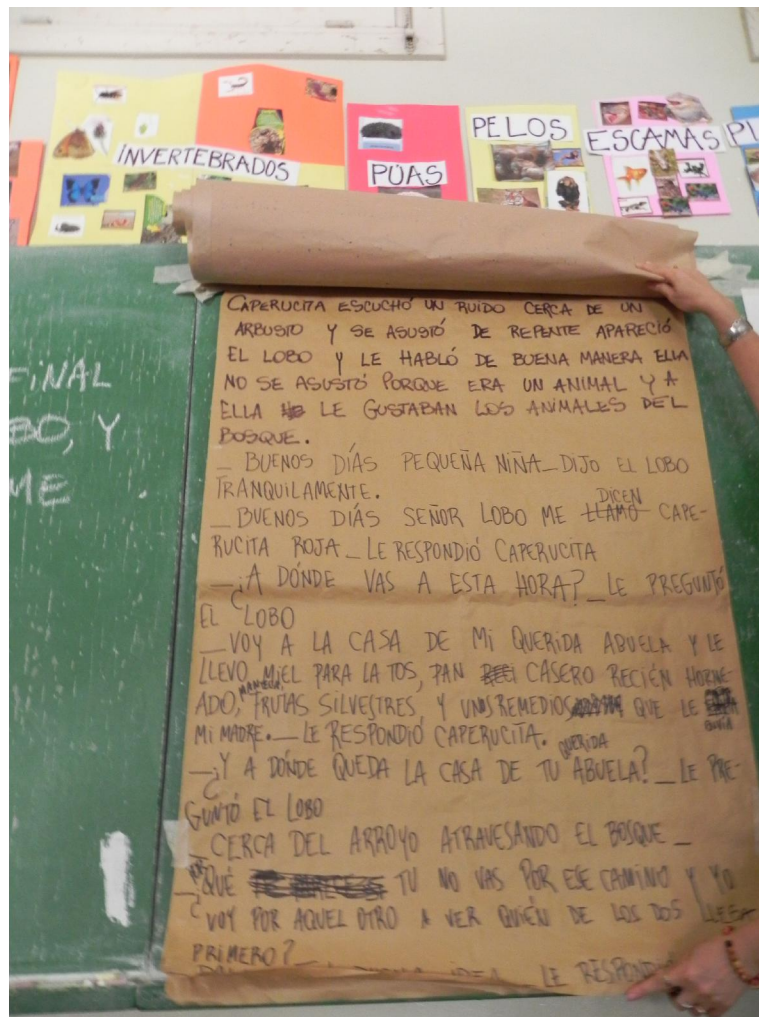 INVERTEBRADOS
PÚAS
PELOS
ESCAMAS
PL
FINAL
BO, Y
ME
CAPERUCITA ESCUCHÓ UN RUIDO CERCA DE UN
ARBUSTO Y SE ASUSTÓ DE REPENTE APARECIÓ
EL LOBO Y LE HABLÓ DE BUENA MANERA ELLA
NO SE ASUSTÓ PORQUE ERA UN ANIMAL Y A
ELLA LE GUSTABAN LOS ANIMALES DEL
BOSQUE.
_ BUENOS DÍAS PEQUEÑA NIÑA_DIJO EL LOBO
TRANQUILAMENTE.
DICEN
_ BUENOS DÍAS SEÑOR LOBO ME LLAMO CAPE-
RUCITA ROJA_LE RESPONDIÓ CAPERUCITA
_¿A DÓNDE VAS A ESTA HORA?_LE PREGUNTÓ
EL LOBO
_VOY A LA CASA DE MI QUERIDA ABUELA Y LE
LLEVO MIEL PARA LA TOS, PAN CASERO RECIÉN HORNE
MANTECA,
ADO, FRUTAS SILVESTRES, Y UNOS REMEDIOS QUE LE
MI MADRE._ LE RESPONDIÓ CAPERUCITA.
QUERIDA
_¿Y A DÓNDE QUEDA LA CASA DE TU ABUELA?_LE PRE-
GUNTÓ EL LOBO
_CERCA DEL ARROYO ATRAVESANDO EL BOSQUE_
_¿QUÉ TU NO VAS POR ESE CAMINO Y YO
VOY POR AQUEL OTRO A VER QUIÉN DE LOS DOS LLEGA
PRIMERO?_
IDEA_ LE RESPONDIÓ